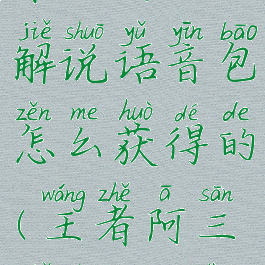 jiě shuō yǔ yīn bāo
解说语音包
zěn me huò dé de
怎么获得的
wáng zhě ā sān
(王者阿三